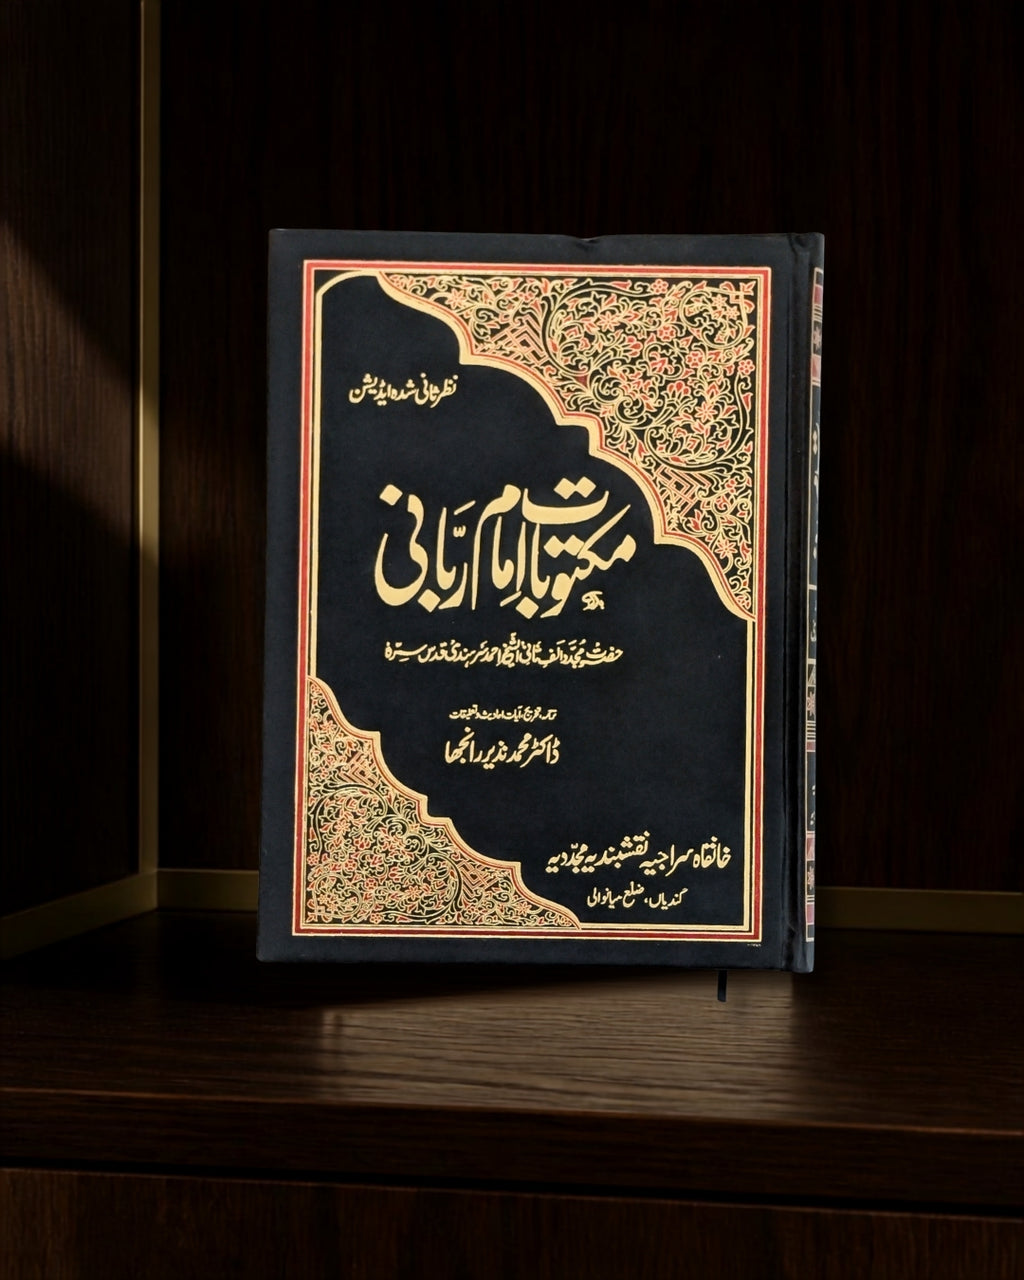 نظر ثانی شدہ ایڈیشن
مکتوبات امام ربّانی
حضرت مجدّد الف ثانی الشیخ احمد سرہندی قدس سرّہٗ
ترجمہ، تخریج، آیات، احادیث و تعلیقات
ڈاکٹر محمد نذیر رانجھا
خانقاہ سراجیہ نقشبندیہ مجدّدیہ
کندیاں، ضلع میانوالی